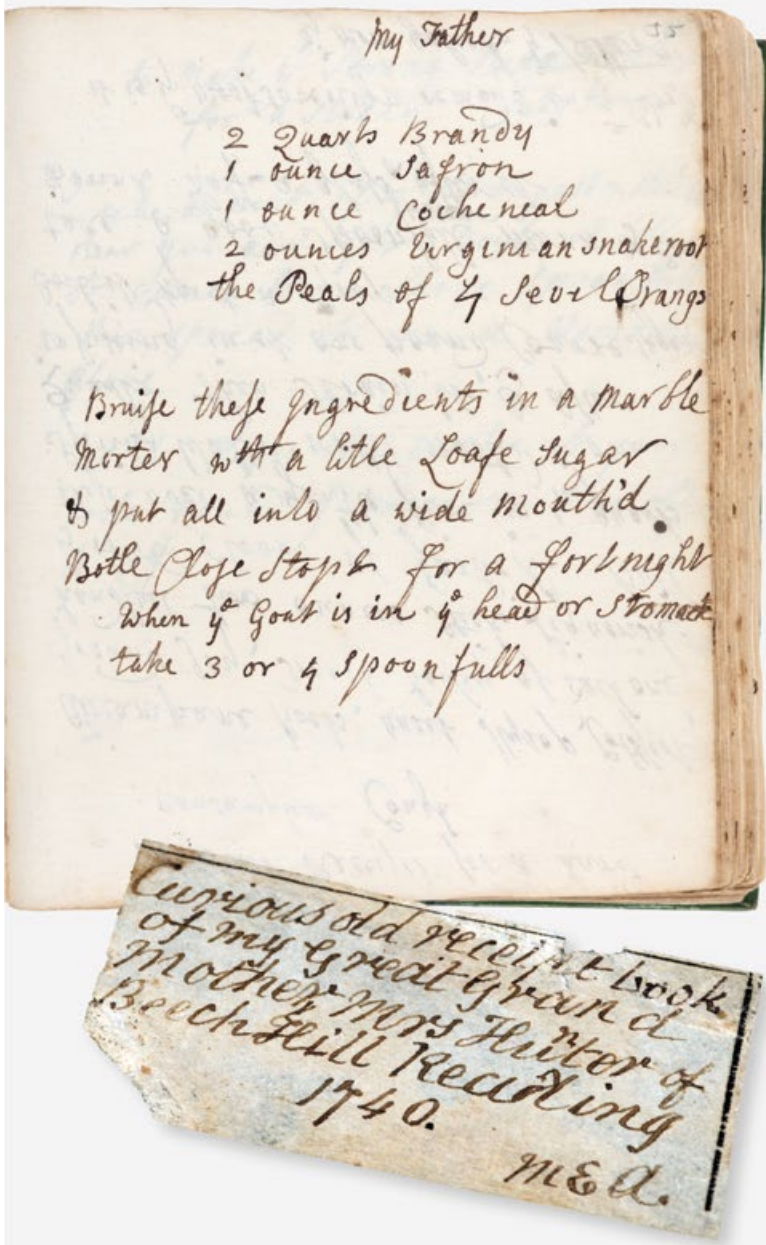 My Father
22
2 Quarts Brandy
1 ounce Safron
1 ounce Cocheneal
2 ounces Virginian snakeroot
the Peals of 4 Sevel Orangs
Bruise these Ingredients in a Marble
Morter wth a litle Loafe Sugar
& put all into a wide Mouth'd
Botle Close Stopt for a fortnight
When ye Gout is in ye head or Stomack
take 3 or 4 Spoonfulls
Curious old receipt book
of my Great Grand
Mother Mrs Hunter of
Beech Hill Reading
1740.
M E A.